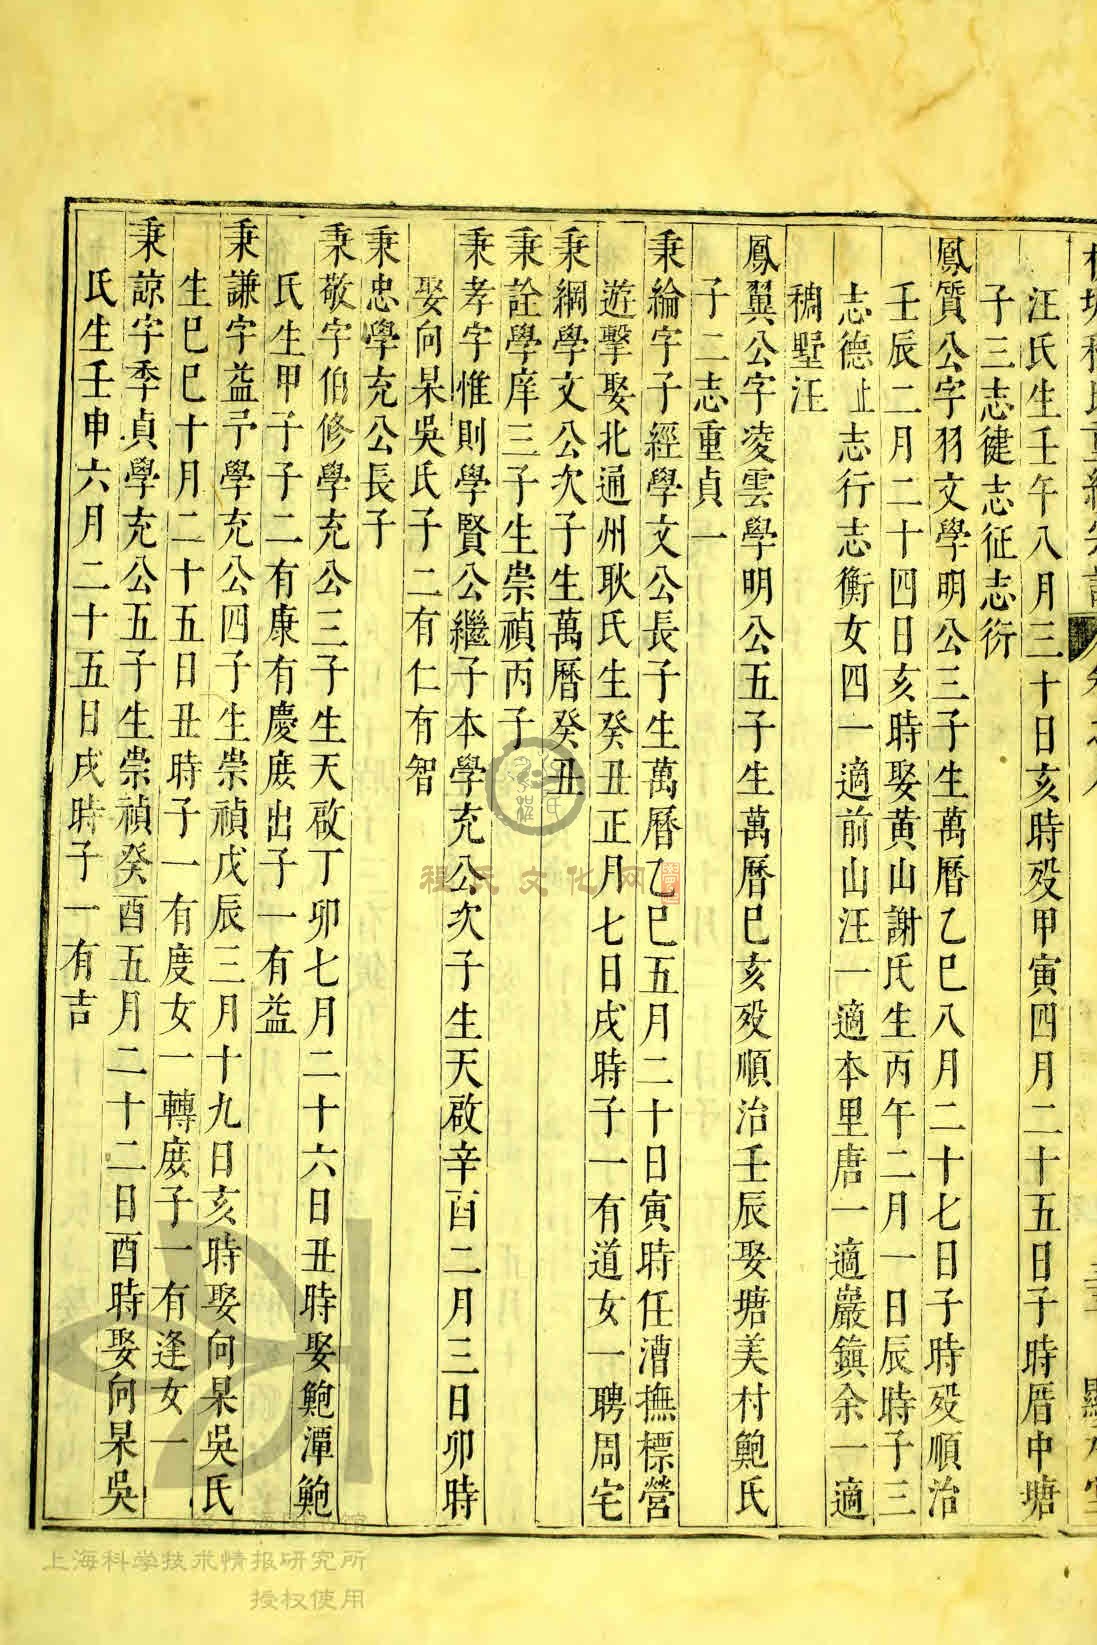 汪氏生壬午八月三十日亥時殁甲寅四月二十五日子時厝中塘
子三志健志征志衍
鳳質公字羽文學明公三子生萬曆乙巳八月二十七日子時殁順治
壬辰二月二十四日亥時娶黃山謝氏生丙午二月一日辰時子三
志德志行志衡女四一適前山汪一適本里唐一適巖鎮余一適
稠墅汪
鳳翼公字凌雲學明公五子生萬曆巳亥殁順治壬辰娶塘美村鮑氏
子二志重貞一
秉綸字子經學文公長子生萬曆乙巳五月二十日寅時任漕撫標營
遊擊娶北通州耿氏生癸丑正月七日戌時子一有道女一聘周宅
秉綱學文公次子生萬曆癸丑
秉詮學庠三子生崇禎丙子
秉孝字惟則學賢公繼子本學充公次子生天啟辛酉二月三日卯時
娶向杲吳氏子二有仁有智
秉忠學充公長子
秉敬字伯修學充公三子生天啟丁卯七月二十六日丑時娶鮑潭鮑
氏生甲子子二有康有慶庻出子一有益
秉謙字益予學充公四子生崇禎戊辰三月十九日亥時娶向杲吳氏
生巳巳十月二十五日丑時子一有度女一轉庻子一有逢女一
秉諒字季貞學充公五子生崇禎癸酉五月二十二日酉時娶向杲吳
氏生壬申六月二十五日戌時子一有吉
程氏文化网
上海科学技术情报研究所
授权使用